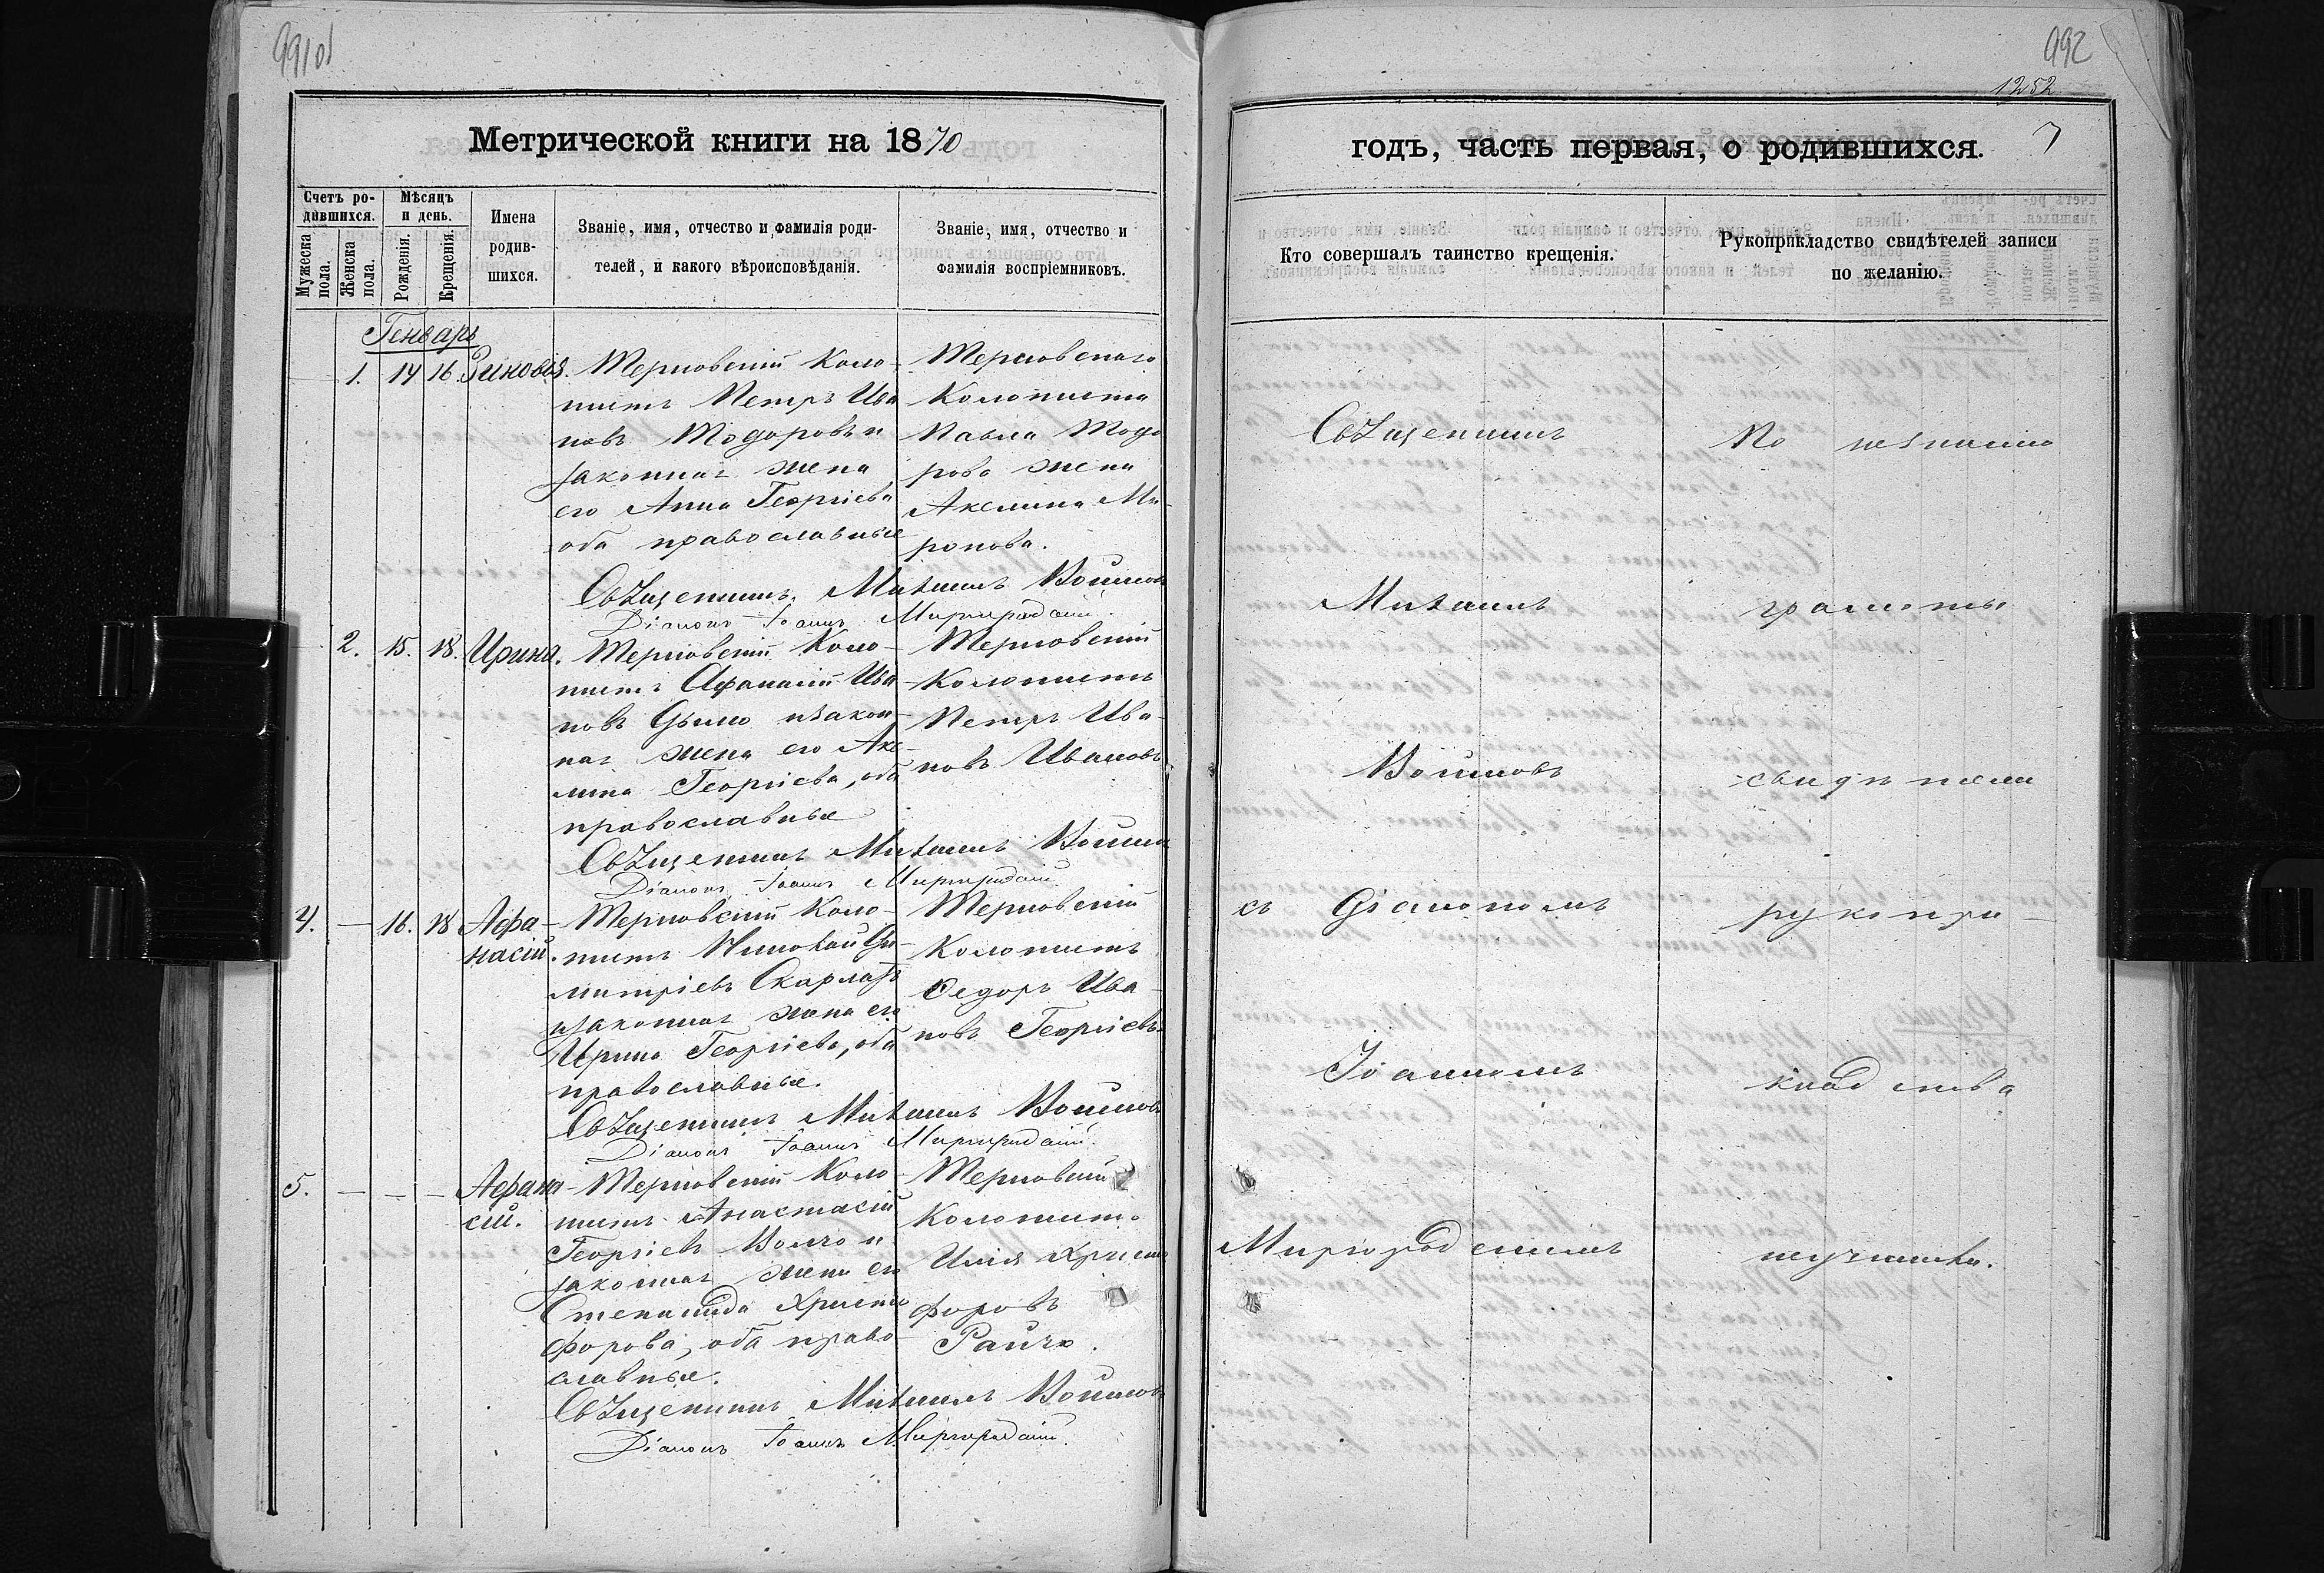 991об
Метрической книги на 1870
Счетъ ро-
дившихся.
Мужеска
пола.
Женска
пола.
Мѣсяцъ
и день.
Рожденія.
Крещенія.
Имена
родив-
шихся.
Званіе, имя, отчество и фамилія роди-
телей, и какого вѣроисповѣданія.
Званіе, имя, отчество и
фамилія воспріемниковъ.
Генварь
1. 14 16 Зиновія.
Терновскій Коло-
нистъ Петръ Ива
новъ Тодоровъ и
законная жена
его Анна Георгіева
оба православные
Терновскаго
Колониста
Павла Тодо
рова жена
Акелина Ми-
ронова.
Священникъ Михаилъ Войновъ
Діаконъ Іоаннъ Миргородскій.
2. 15. 18. Ирина.
Терновскій Коло-
нистъ Афанасій Ива
новъ и закон-
ная жена его Аке-
лина Георгіева, оба
православные
Терновскій
Колонистъ
Петръ Ива-
новъ Ивановъ
Священникъ Михаилъ Войновъ
Діаконъ Іоаннъ Миргородскій
4. — 16. 18 Афа-
насій.
Терновскій Коло-
нистъ Николай Ди-
митріевъ Скарлатъ
и законная жена его
Ирина Георгіева, оба
православные.
Терновскій
Колонистъ
Федоръ Ива-
новъ Георгіевъ
Священникъ Михаилъ Войновъ
Діаконъ Іоаннъ Миргородскій.
5. — — — Афана-
сій.
Терновскій Коло-
нистъ Анастасій
Георгіевъ Волчо и
законная жена его
Степанида Христо
форова, оба право
славные.
Терновскій
Колонистъ
Илія Христо
форовъ
Райчо.
Священникъ Михаилъ Войновъ
Діаконъ Іоаннъ Миргородскій.
992
1252
7
годъ, часть первая, о родившихся.
Кто совершалъ таинство крещенія.
Рукоприкладство свидѣтелей записи
по желанію.
Священникъ
Михаилъ
Войновъ
съ Діакономъ
Іоанномъ
Миргородскимъ
По незнанію
грамоты
свидѣтели
рукопри-
кладства
неучинили.